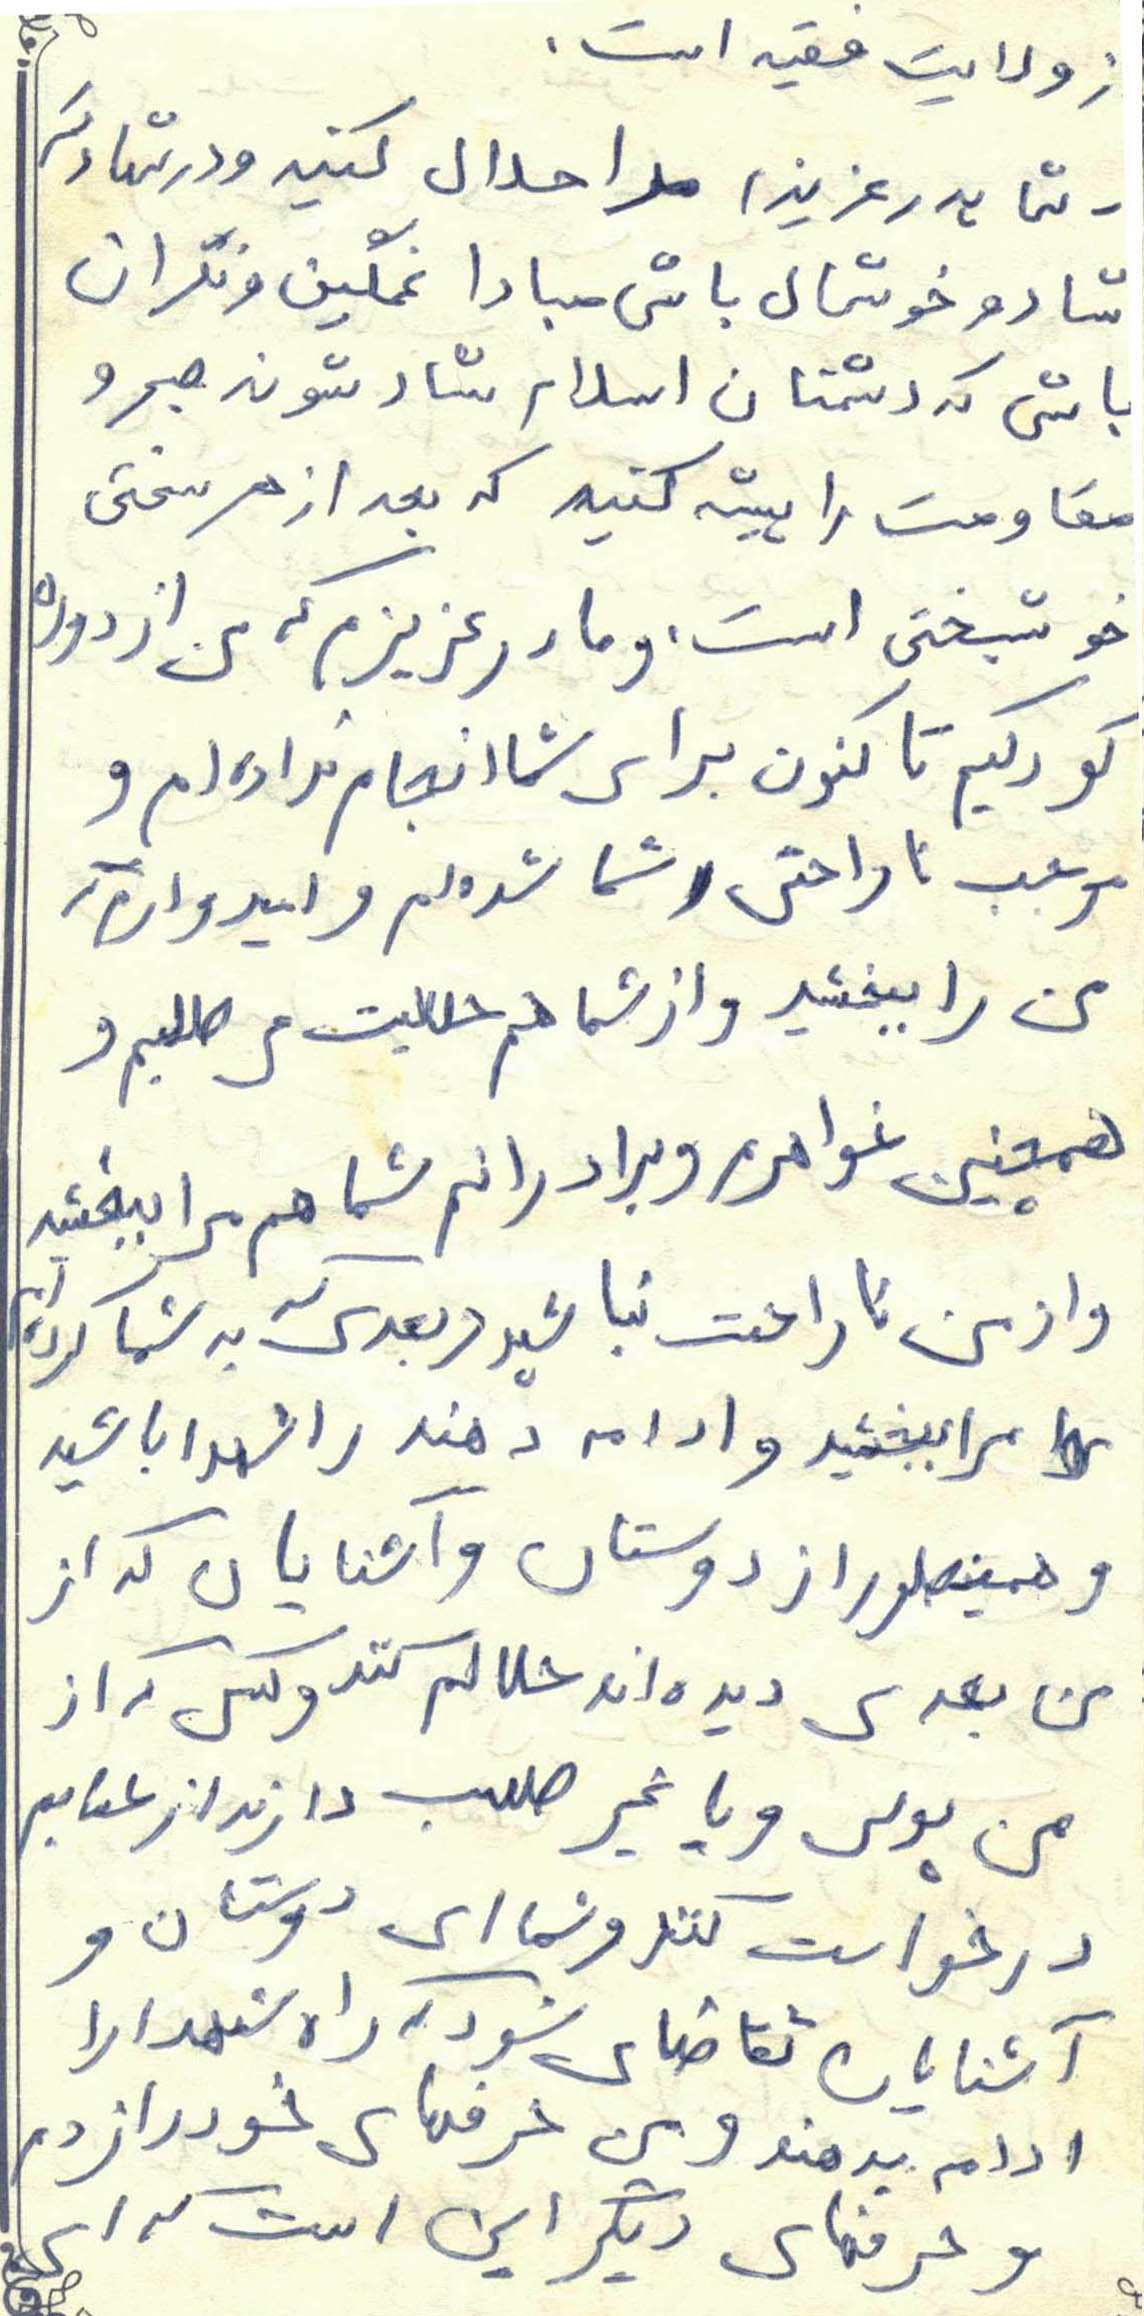 ز ولایت فقیه است.
شما پدر عزیز، مرا حلال کنید و در شهادتم
شاد و خوشحال باش مبادا غمگین و نگران
باش که دشمنان اسلام شاد شوند صبر و
مقاومت را پیشه کنید که بعد از هر سختی
خوشبختی است. و مادر عزیزم که من از دوره
کودکیم تاکنون برای شما انجام نداده‌ام و
موجب ناراحتی شما شده‌ام و امیدوارم که
من را ببخشید و از شما هم حلالیت می طلبم و
همچنین خواهر و برادرانم شما هم مرا ببخشید
و از من ناراحت نباشید و بعدی که به شما کرده‌ام
مرا ببخشید و ادامه دهند راه شهدا باشید
و همینطور از دوستان و آشنایان که از
من بعدی دیده‌اند حلالم کنند و کسی که از
من پولی و یا غیر طلب دارند از
درخواست کنند و شما ای دوستان و
آشنایان تقاضای شود که راه شهدا را
ادامه بدهند و من حرفهای خود را زدم
و حرفهای دیگر این است که ای